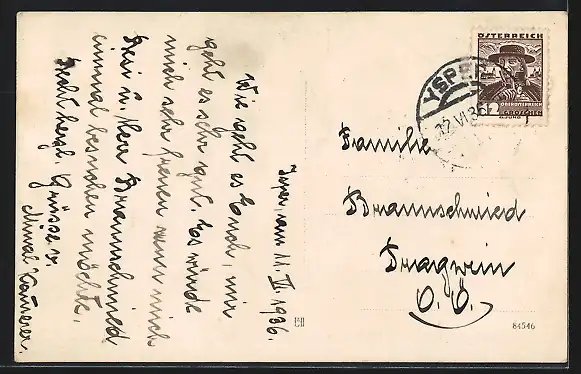 Ysper, am 11. VI 1936.
Wie geht es Euch, mir
geht es sehr gut. Es würde
mich sehr freuen wenn mich
Resi u. Herr Braunschmied
einmal besuchen möchte.
Recht herzl. Grüsse v.
ÖSTERREICH
12
OBERÖSTERREICH
GROSCHEN
YSPER
12.VI.36
Familie
Braunschmied
Pragwein
O. Ö.
84546